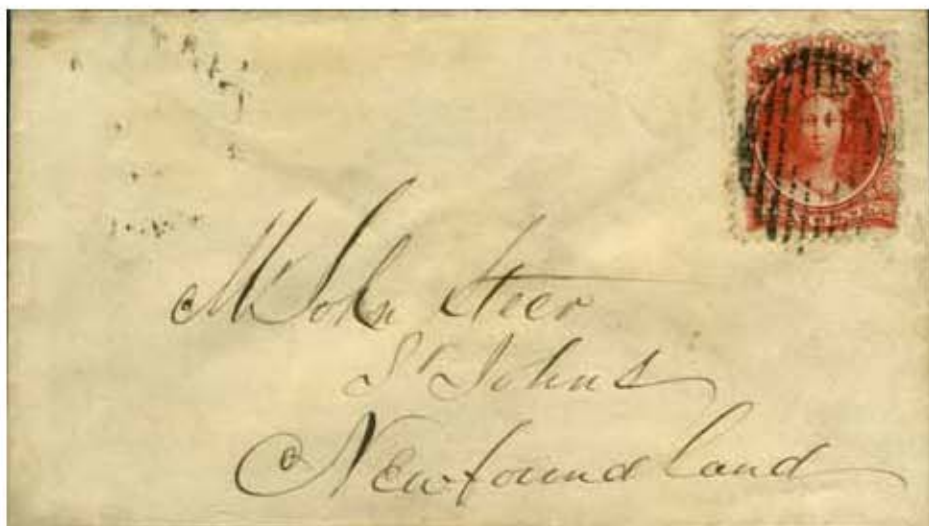 Mr John Steer
St Johns
Newfoundland